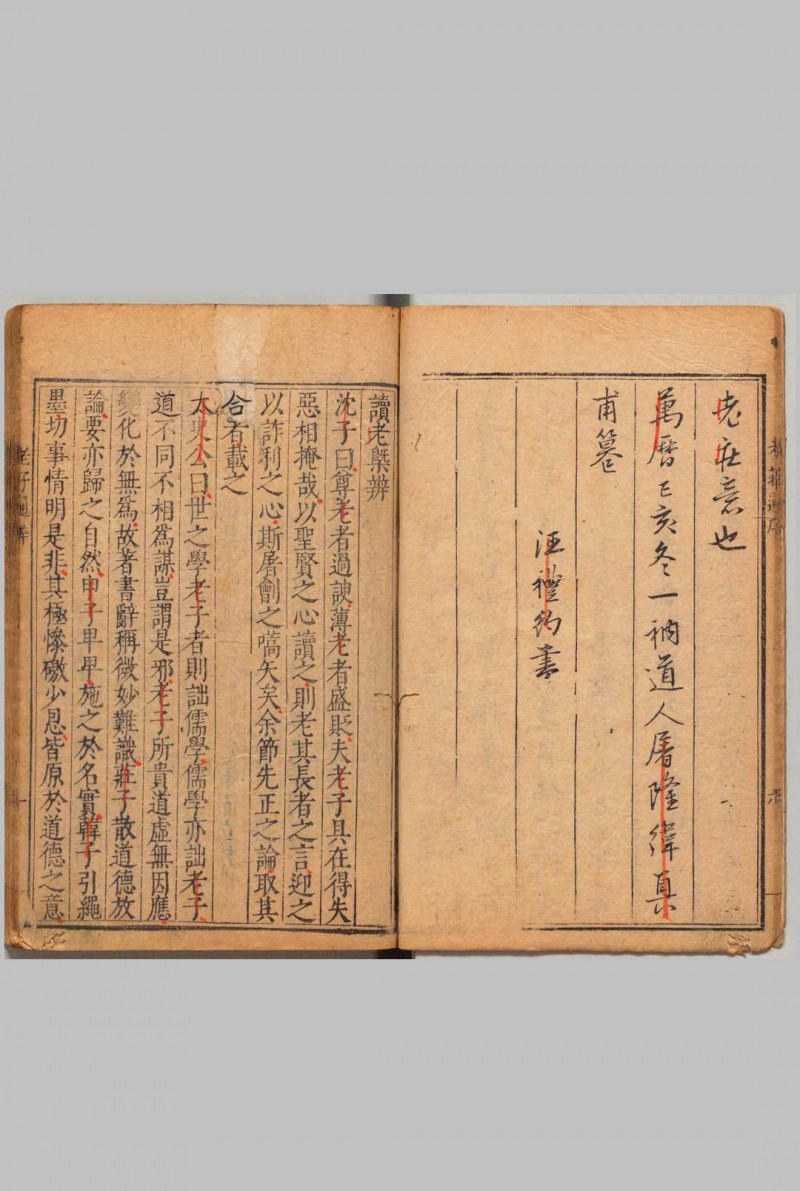 老莊意也
萬曆丁亥冬一衲道人屠隆緯真
甫篹
汪禮約書
讀老槩辨
沈子曰尊老者過諛薄老者盛貶夫老子具在得失
惡相掩哉以聖賢之心讀之則老其長者之言迎之
以詐利之心斯屠劊之嚆矢矣余節先正之論取其
合者載之
太史公曰世之學老子者則詘儒學儒學亦詘老子
道不同不相爲謀豈謂是邪老子所貴道虛無因應
變化於無爲故著書辭稱微妙難識莊子散道德放
論要亦歸之自然申子卑卑施之於名實韓子引繩
墨切事情明是非其極慘礉少恩皆原於道德之意